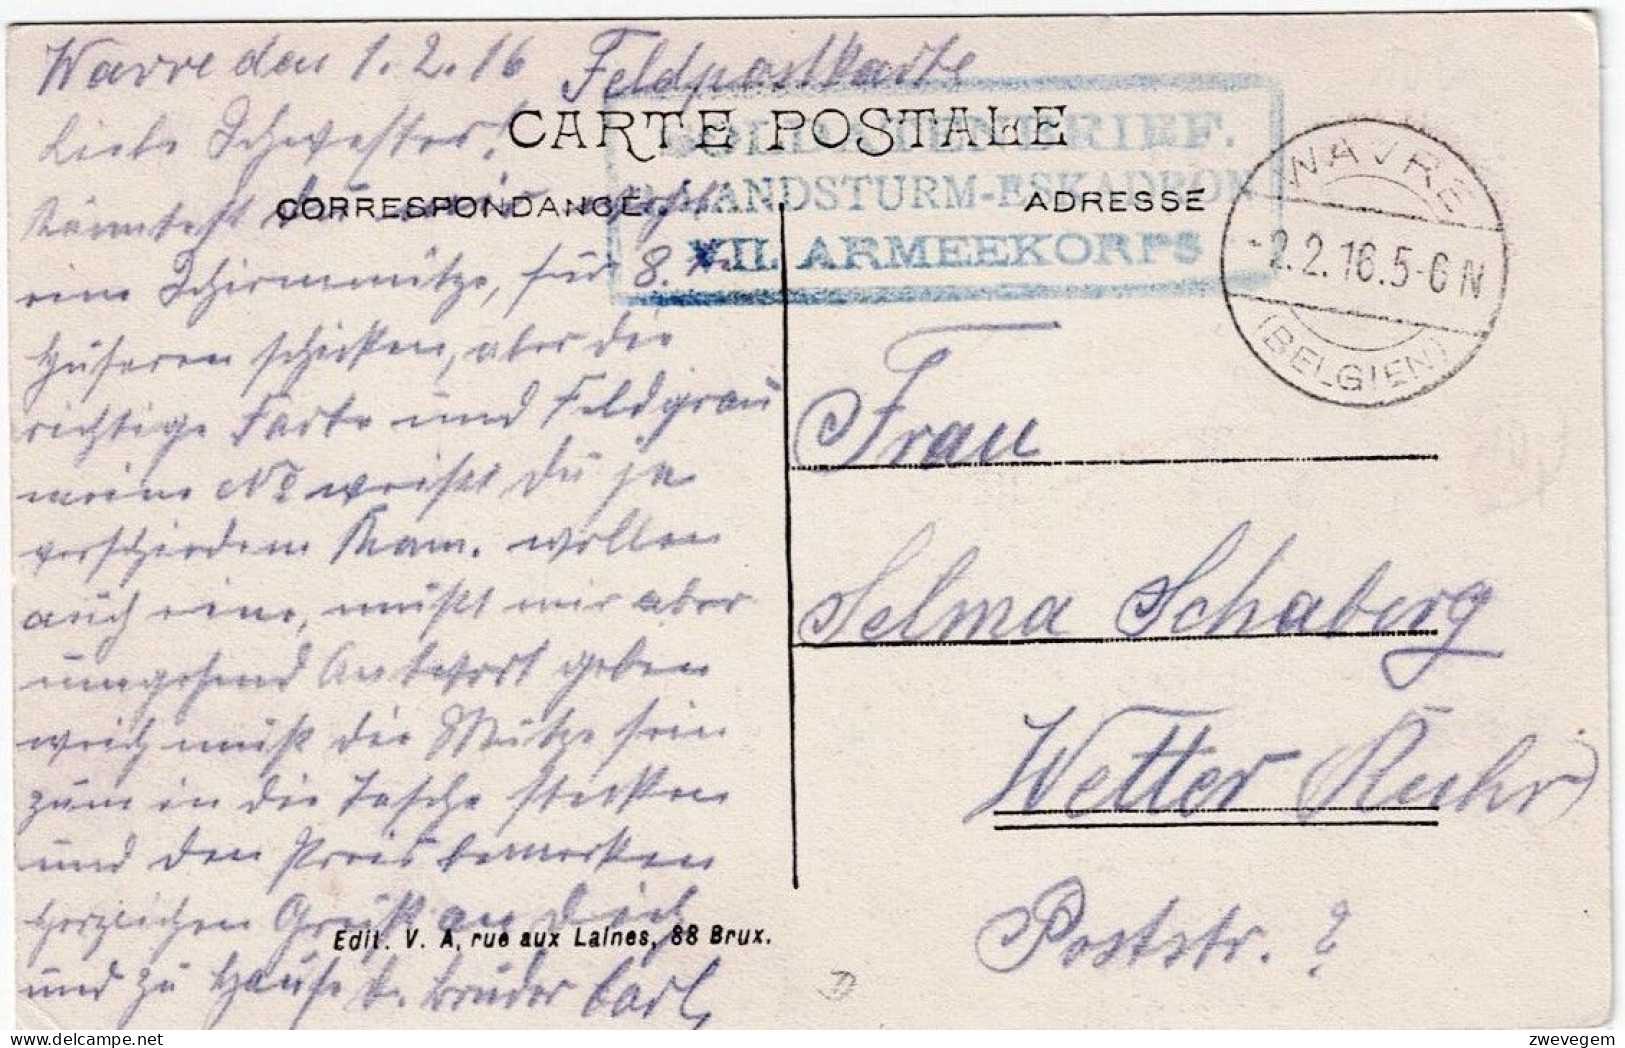 Wavre den 1.2.16 Feldpostkarte
CARTE POSTALE
CORRESPONDANCE
ADRESSE
SOLDATENBRIEF.
LANDSTURM-ESKADRON
VII. ARMEEKORPS
WAVRE
-2.2.16.5-6N
(BELGIEN)
Liebe Schwester!
Könntest
eine Schirmmütze, für 8.
Husaren schicken, aber die
richtige Farbe und Feldgrau
meine No weißt Du ja
verschiedene Kam. wollen
auch eine, mußt mir aber
umgehend Antwort geben
weich muß die Mütze sein
zum in die Tasche stecken
und den Preis bemerken
herzlichen Gruß an Dich
und zu Hause Bruder Carl
Frau
Selma Schaberg
Wetter Ruhr
Poststr. ?
Edit. V. A, rue aux Laines, 88 Brux.
zwevegem